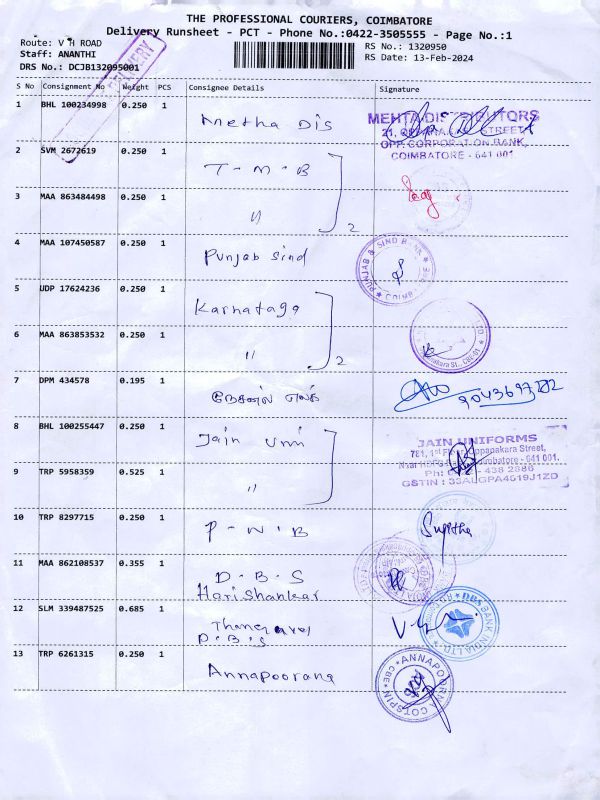 THE PROFESSIONAL COURIERS, COIMBATORE
Delivery Runsheet - PCT - Phone No.:0422-3505555 - Page No.:1
Route: V H ROAD
RS No.: 1320950
Staff: ANANTHI
RS Date: 13-Feb-2024
DRS No.: DCJB132095001
DELIVERY
S No Consignment No Weight PCS Consignee Details Signature
1 BHL 100234998 0.250 1 Metha Dis
MEHTA DISTRIBUTORS
21, STREET,
OPP. CORPORATION BANK,
COIMBATORE - 641 001.
2 SVM 2672619 0.250 1 T - M - B
3 MAA 863484498 0.250 1 " 2
4 MAA 107450587 0.250 1 Punjab Sind
PUNJAB & SIND BANK
5 UDP 17624236 0.250 1 Karnataga
6 MAA 863853532 0.250 1 " 2
7 DPM 434578 0.195 1
8 BHL 100255447 0.250 1 Jain Uni
JAIN UNIFORMS
781, 1st Floor, Oppanakara Street,
Coimbatore - 641 001.
438 2886
GSTIN : 33AUGPA4619J1ZD
9 TRP 5958359 0.525 1 "
10 TRP 8297715 0.250 1 P - N - B
11 MAA 862108537 0.355 1 D - B - S
Harishankar
12 SLM 339487525 0.685 1 Thangavel
D.B.S
BANK INDIA LTD.
13 TRP 6261315 0.250 1 Annapoorana
ANNAPOORNA COTSPIN
CBE